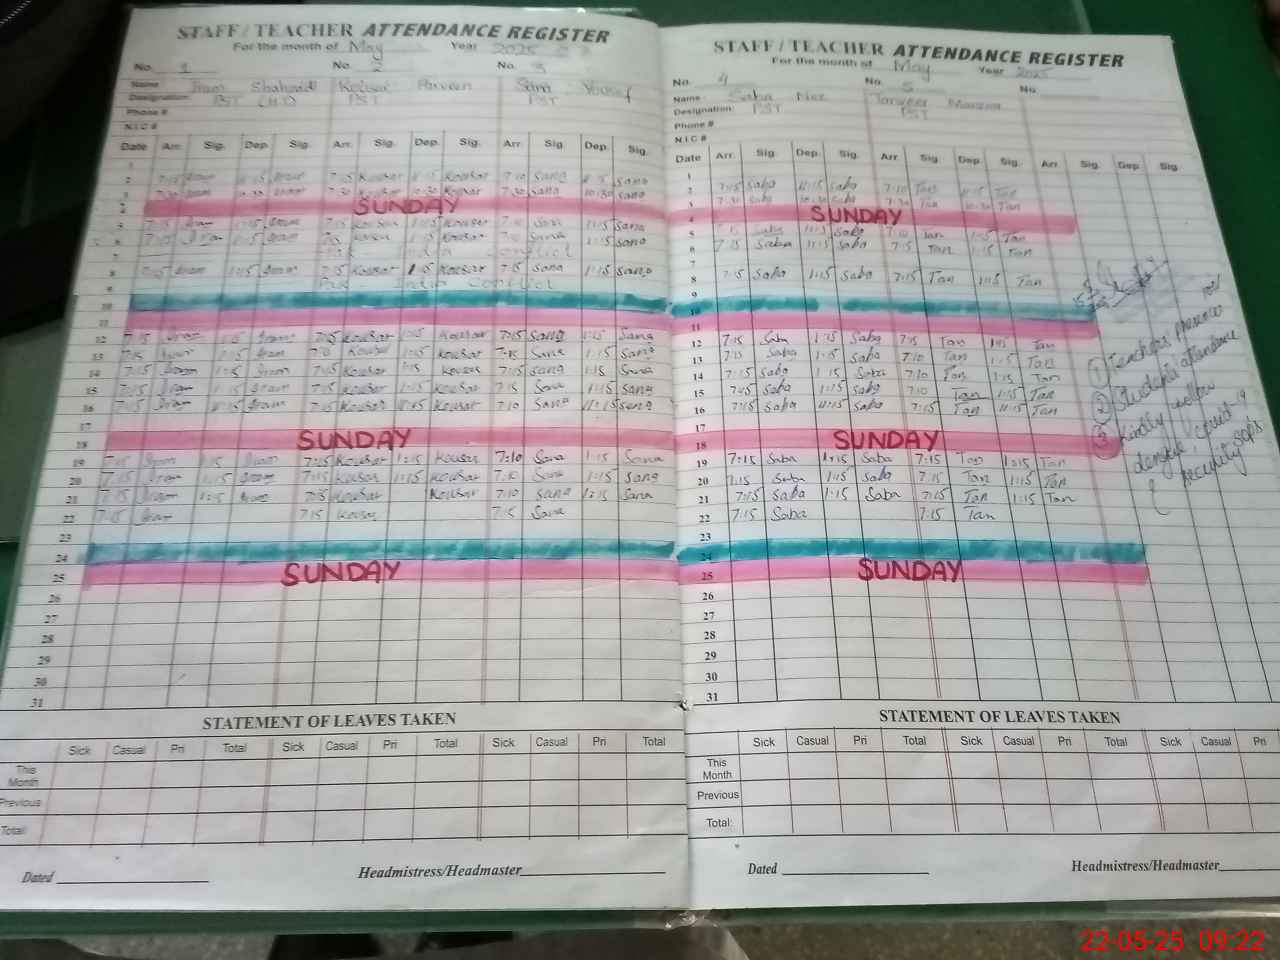 STAFF / TEACHER ATTENDANCE REGISTER
For the month of May Year 2025
No. 1 No. 2 No. 3
Name Iram Shahzadi Kousar Parveen Sara Yousaf
Designation PST (H.T) PST PST
Phone #
N.I.C #
Date Arr. Sig. Dep. Sig. Arr. Sig. Dep. Sig. Arr. Sig. Dep. Sig.
1
2 7:15 Iram 11:15 Iram 7:15 Kousar 11:15 Kousar 7:10 Sana 11:15 Sana
3 7:30 Iram 10:30 Iram 7:30 Kousar 10:30 Kousar 7:30 Sana 10:30 Sana
4 SUNDAY
5 7:15 Iram 1:15 Iram 7:15 Kousar 1:15 Kousar 7:10 Sana 1:15 Sana
6 7:15 Iram 1:15 Iram 7:15 Kousar 1:15 Kousar 7:10 Sana 1:15 Sana
7 Pak India Conflict
8 7:15 Iram 1:15 Iram 7:15 Kousar 1:15 Kousar 7:15 Sana 1:15 Sana
9 Pak India Conflict
10
11
12 7:15 Iram 1:15 Iram 7:15 Kousar 1:15 Kousar 7:15 Sana 1:15 Sana
13 7:15 Iram 1:15 Iram Kousar 1:15 Kousar 7:15 Sana 1:15 Sana
14 7:15 Iram 1:15 Iram 7:15 Kousar 1:15 Kousar 7:15 Sana 1:15 Sana
15 7:15 Iram 1:15 Iram 7:15 Kousar 1:15 Kousar 7:15 Sana 1:15 Sana
16 7:15 Iram 11:15 Iram 7:15 Kousar 11:15 Kousar 7:10 Sana 11:15 Sana
17
18 SUNDAY
19 7:15 Iram 1:15 Iram 7:15 Kousar 1:15 Kousar 7:10 Sara 1:15 Sana
20 7:15 Iram 1:15 Iram 7:15 Kousar 1:15 Kousar 7:15 Sara 1:15 Sana
21 7:15 Iram 1:15 Iram 7:15 Kousar Kousar 7:10 Sana 1:15 Sana
22 7:15 Iram 7:15 Kousar 7:15 Sara
23
24
25 SUNDAY
26
27
28
29
30
31
STATEMENT OF LEAVES TAKEN
Sick Casual Pri Total Sick Casual Pri Total Sick Casual Pri Total
This Month
Previous
Total:
Dated Headmistress/Headmaster
STAFF / TEACHER ATTENDANCE REGISTER
For the month of May Year 2025
No. 4 No. 5 No.
Name Saba Tanveer
Designation: PST PST
Phone #
N.I.C #
Date Arr. Sig. Dep. Sig. Arr. Sig. Dep. Sig. Arr. Sig. Dep. Sig.
1
2 7:15 Saba 11:15 Saba 7:10 Tan 11:15 Tan
3 7:30 Saba 10:30 Saba 7:30 Tan 10:30 Tan
4 SUNDAY
5 7:15 Saba 1:15 Saba 7:10 Tan 1:15 Tan
6 7:15 Saba 1:15 Saba 7:15 Tan 1:15 Tan
7
8 7:15 Saba 1:15 Saba 7:15 Tan 1:15 Tan
9
10
11
12 7:15 Saba 1:15 Saba 7:15 Tan 1:15 Tan
13 7:15 Saba 1:15 Saba 7:10 Tan 1:15 Tan
14 7:15 Saba 1:15 Saba 7:10 Tan 1:15 Tan
15 7:15 Saba 1:15 Saba 7:10 Tan 1:15 Tan
16 7:15 Saba 11:15 Saba 7:15 Tan 11:15 Tan
17
18 SUNDAY
19 7:15 Saba 1:15 Saba 7:15 Tan 1:15 Tan
20 7:15 Saba 1:15 Saba 7:15 Tan 1:15 Tan
21 7:15 Saba 1:15 Saba 7:15 Tan 1:15 Tan
22 7:15 Saba 7:15 Tan
23
24
25 SUNDAY
26
27
28
29
30
31
① Teachers presence
② Students attendance
③ Kindly follow
dengue, covid-19
& security sops
STATEMENT OF LEAVES TAKEN
Sick Casual Pri Total Sick Casual Pri Total Sick Casual Pri
This Month
Previous
Total:
Dated Headmistress/Headmaster
22-05-25 09:22